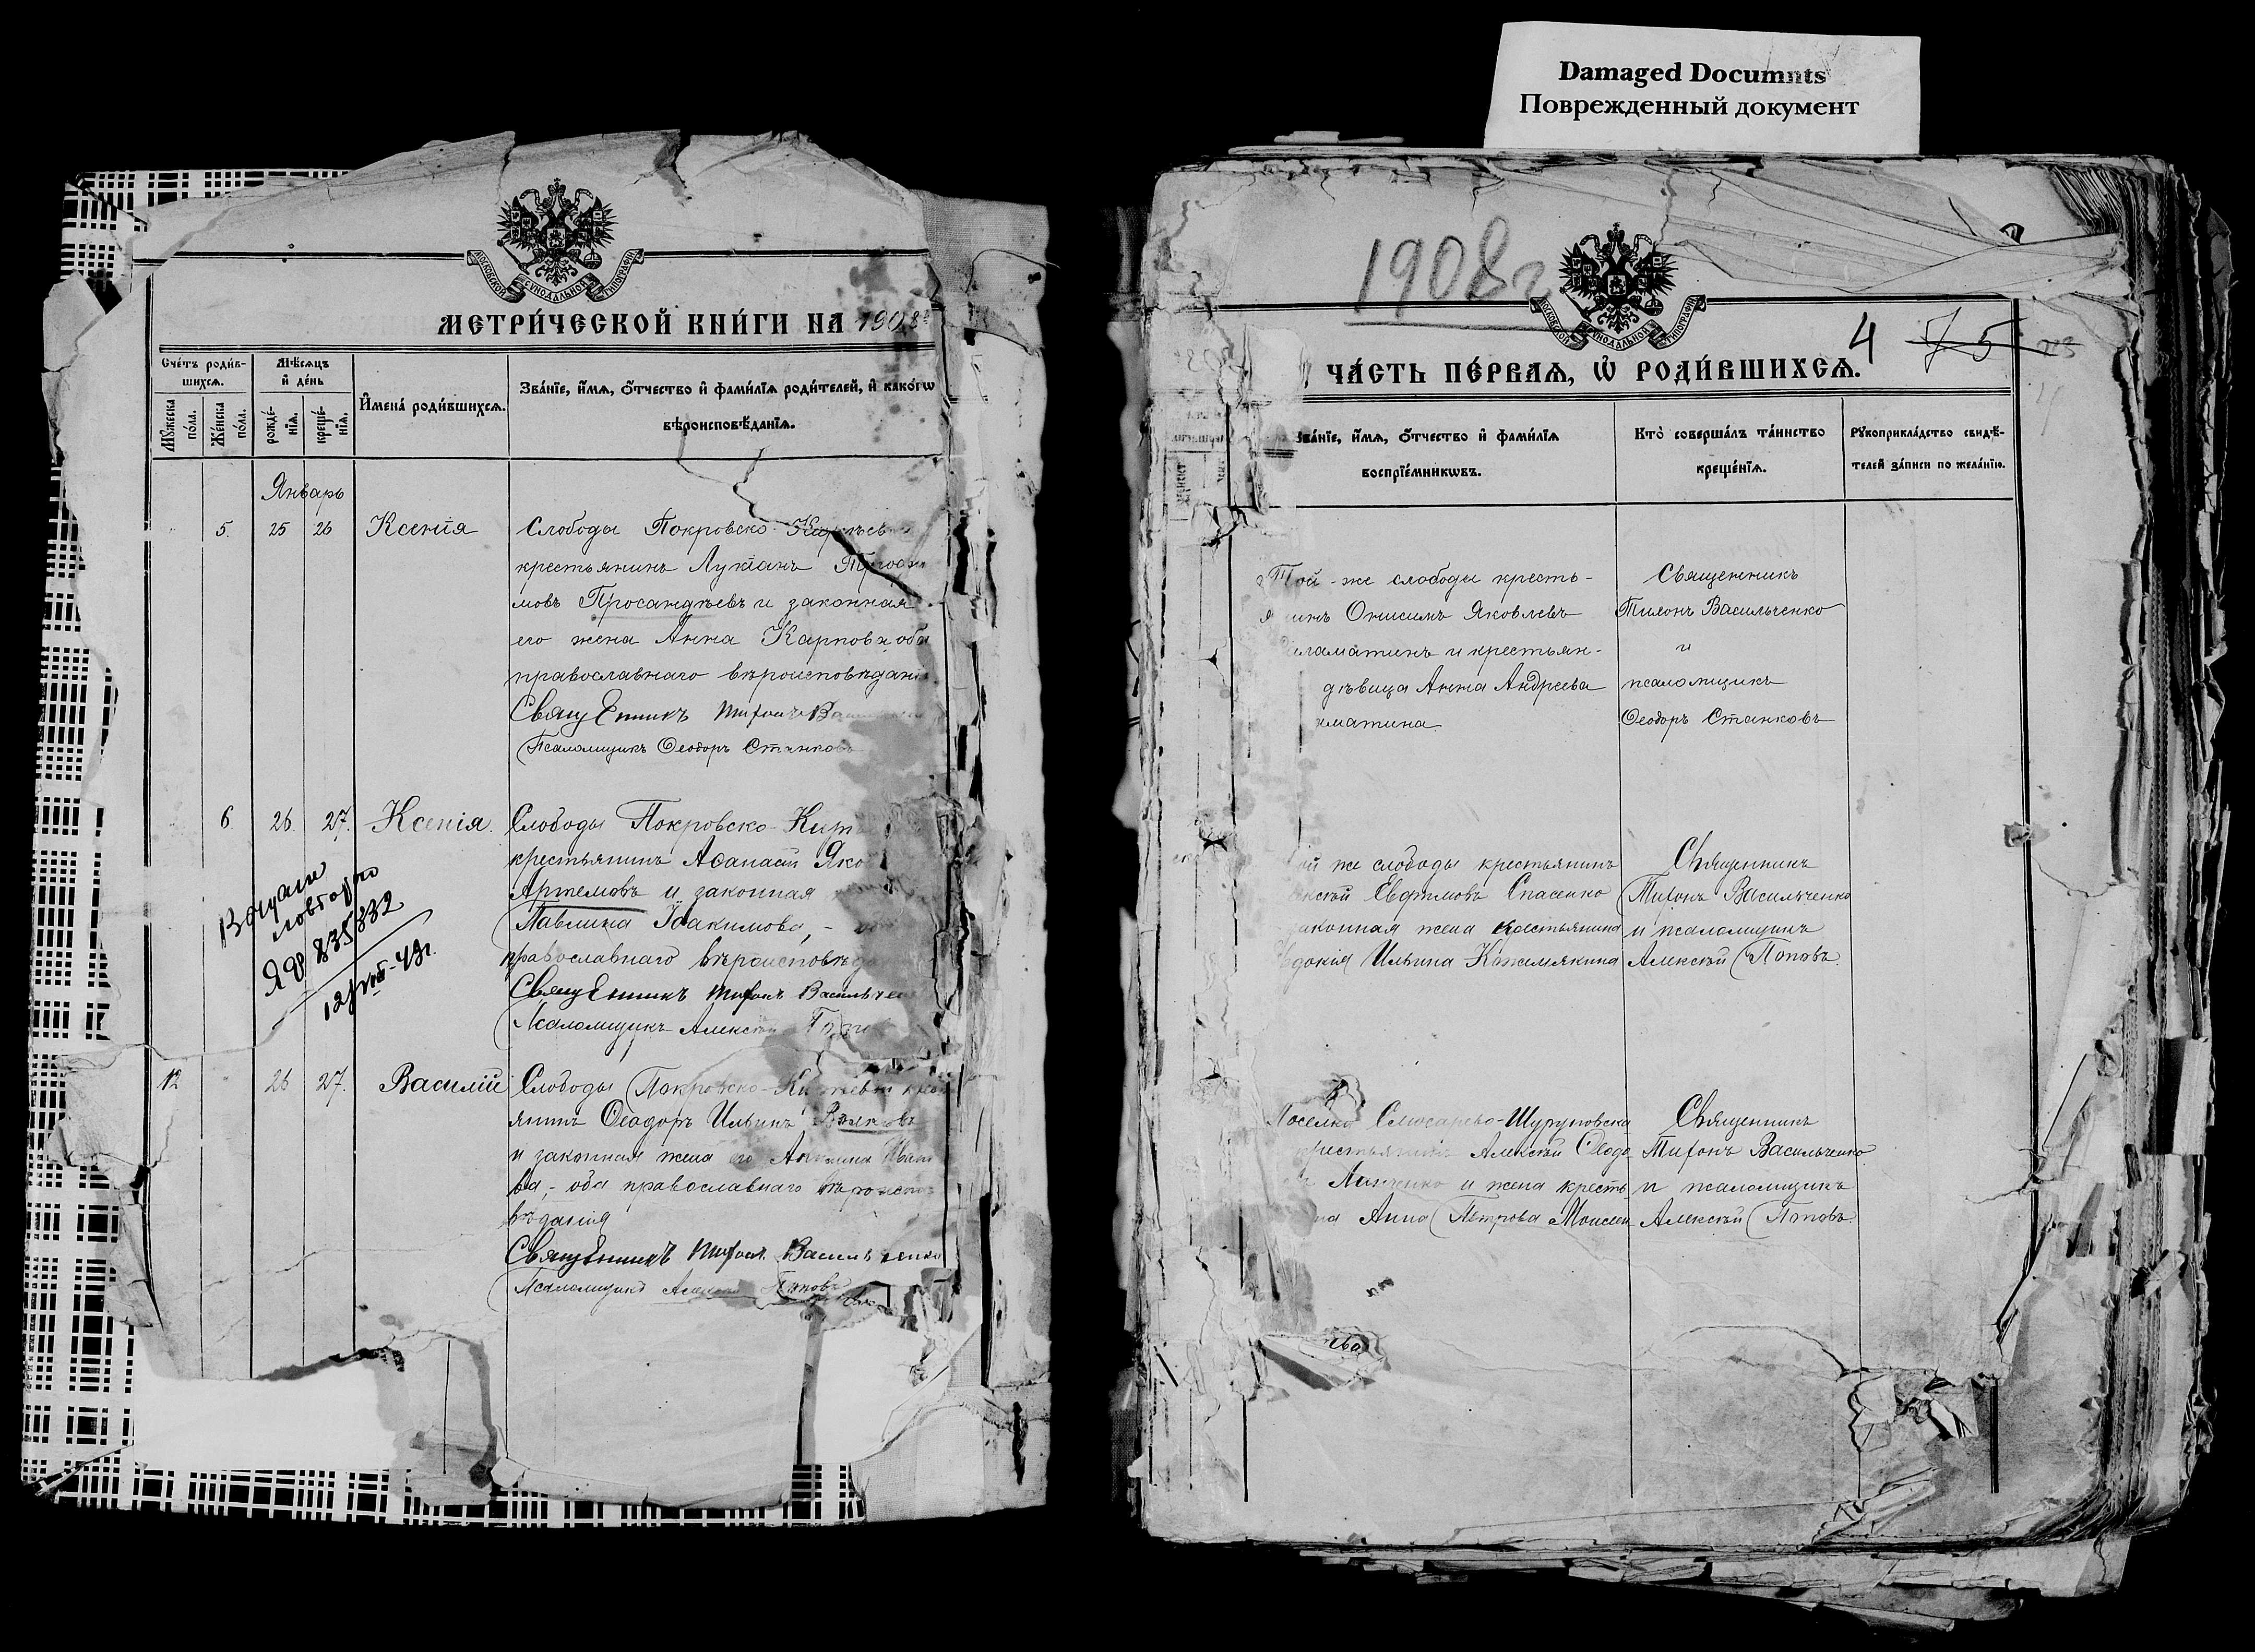 Damaged Documnts
Поврежденный документ
МОСКОВСКОЙ СѴНОДАЛЬНОЙ ТИПОГРАФІИ
МЕТРИ́ЧЕСКОЙ КНИ́ГИ НА 1908 г.
Сче́тъ роди́в-
шихсѧ.
Мѣ́сѧцъ
и҆ де́нь
Мꙋ́жеска
по́ла.
Же́нска
по́ла.
рожде́-
нїѧ.
креще́-
нїѧ.
И҆мена̀ роди́вшихсѧ.
Зва́нїе, и҆́мѧ, ѻ҆́тчество и҆ фами́лїѧ роди́телей, и҆ како́гѡ
вѣроисповѣ́данїѧ.
Январь
5. 25 26 Ксенія
Слободы Покровско-
крестьянинъ Лукіанъ
мовъ Просандѣевъ и законная
его жена Анна Карпова, оба
православнаго вѣроисповѣдані
Священникъ Тихонъ
Псаломщикъ Ѳеодоръ Станковъ
6. 26. 27. Ксенія.
Слободы Покровско-
крестьянинъ Аѳанасій Яко
Артемовъ и законная
Павлина Іоакимова, -
православнаго вѣроисповѣд
Священникъ Тихонъ Васильчен
Псаломщикъ Алексѣй
повторно
ЯФ 835832
12/VIII-43г.
12 26 27. Василій
Слободы Покровско-
янинъ Ѳеодоръ Ильинъ Волковъ
и законная жена его
ва,- оба православнаго вѣроиспо
вѣданія
Священникъ Тихонъ Васильченко
Псаломщикъ Попов
1908 г
МОСКОВСКОЙ СѴНОДАЛЬНОЙ ТИПОГРАФІИ
ЧА́СТЬ ПЕ́РВАѦ, Ѽ РОДИ́ВШИХСѦ.
4 75
Зва́нїе, и҆́мѧ, ѻ҆́тчество и҆ фами́лїѧ
воспрїе́мникѡвъ.
Кто̀ соверша́лъ та́инство
креще́нїѧ.
Рꙋкоприкла́дство свидѣ́-
телей за́писи по жела́нїю.
Той-же слободы кресть-
янинъ Онисимъ Яковлевъ
и крестьян-
дѣвица Анна Андреева
матина.
Священникъ
Тихонъ Васильченко
и
псаломщикъ
Ѳеодоръ Станковъ
ой же слободы крестьянинъ
ксѣй Евфимовъ Спасенко
аконная жена крестьянина
вдокія Ильина Кожемякина
Священникъ
Тихонъ Васильченко
и псаломщикъ
Алексѣй Поповъ.
Поселка Слюсарево-Шуруповска
крестьянинъ Алексѣй Ѳеодо
и жена кресть
на Анна Петрова Моисеен
Священникъ
Тихонъ Васильченко
и псаломщикъ
Алексѣй Поповъ.